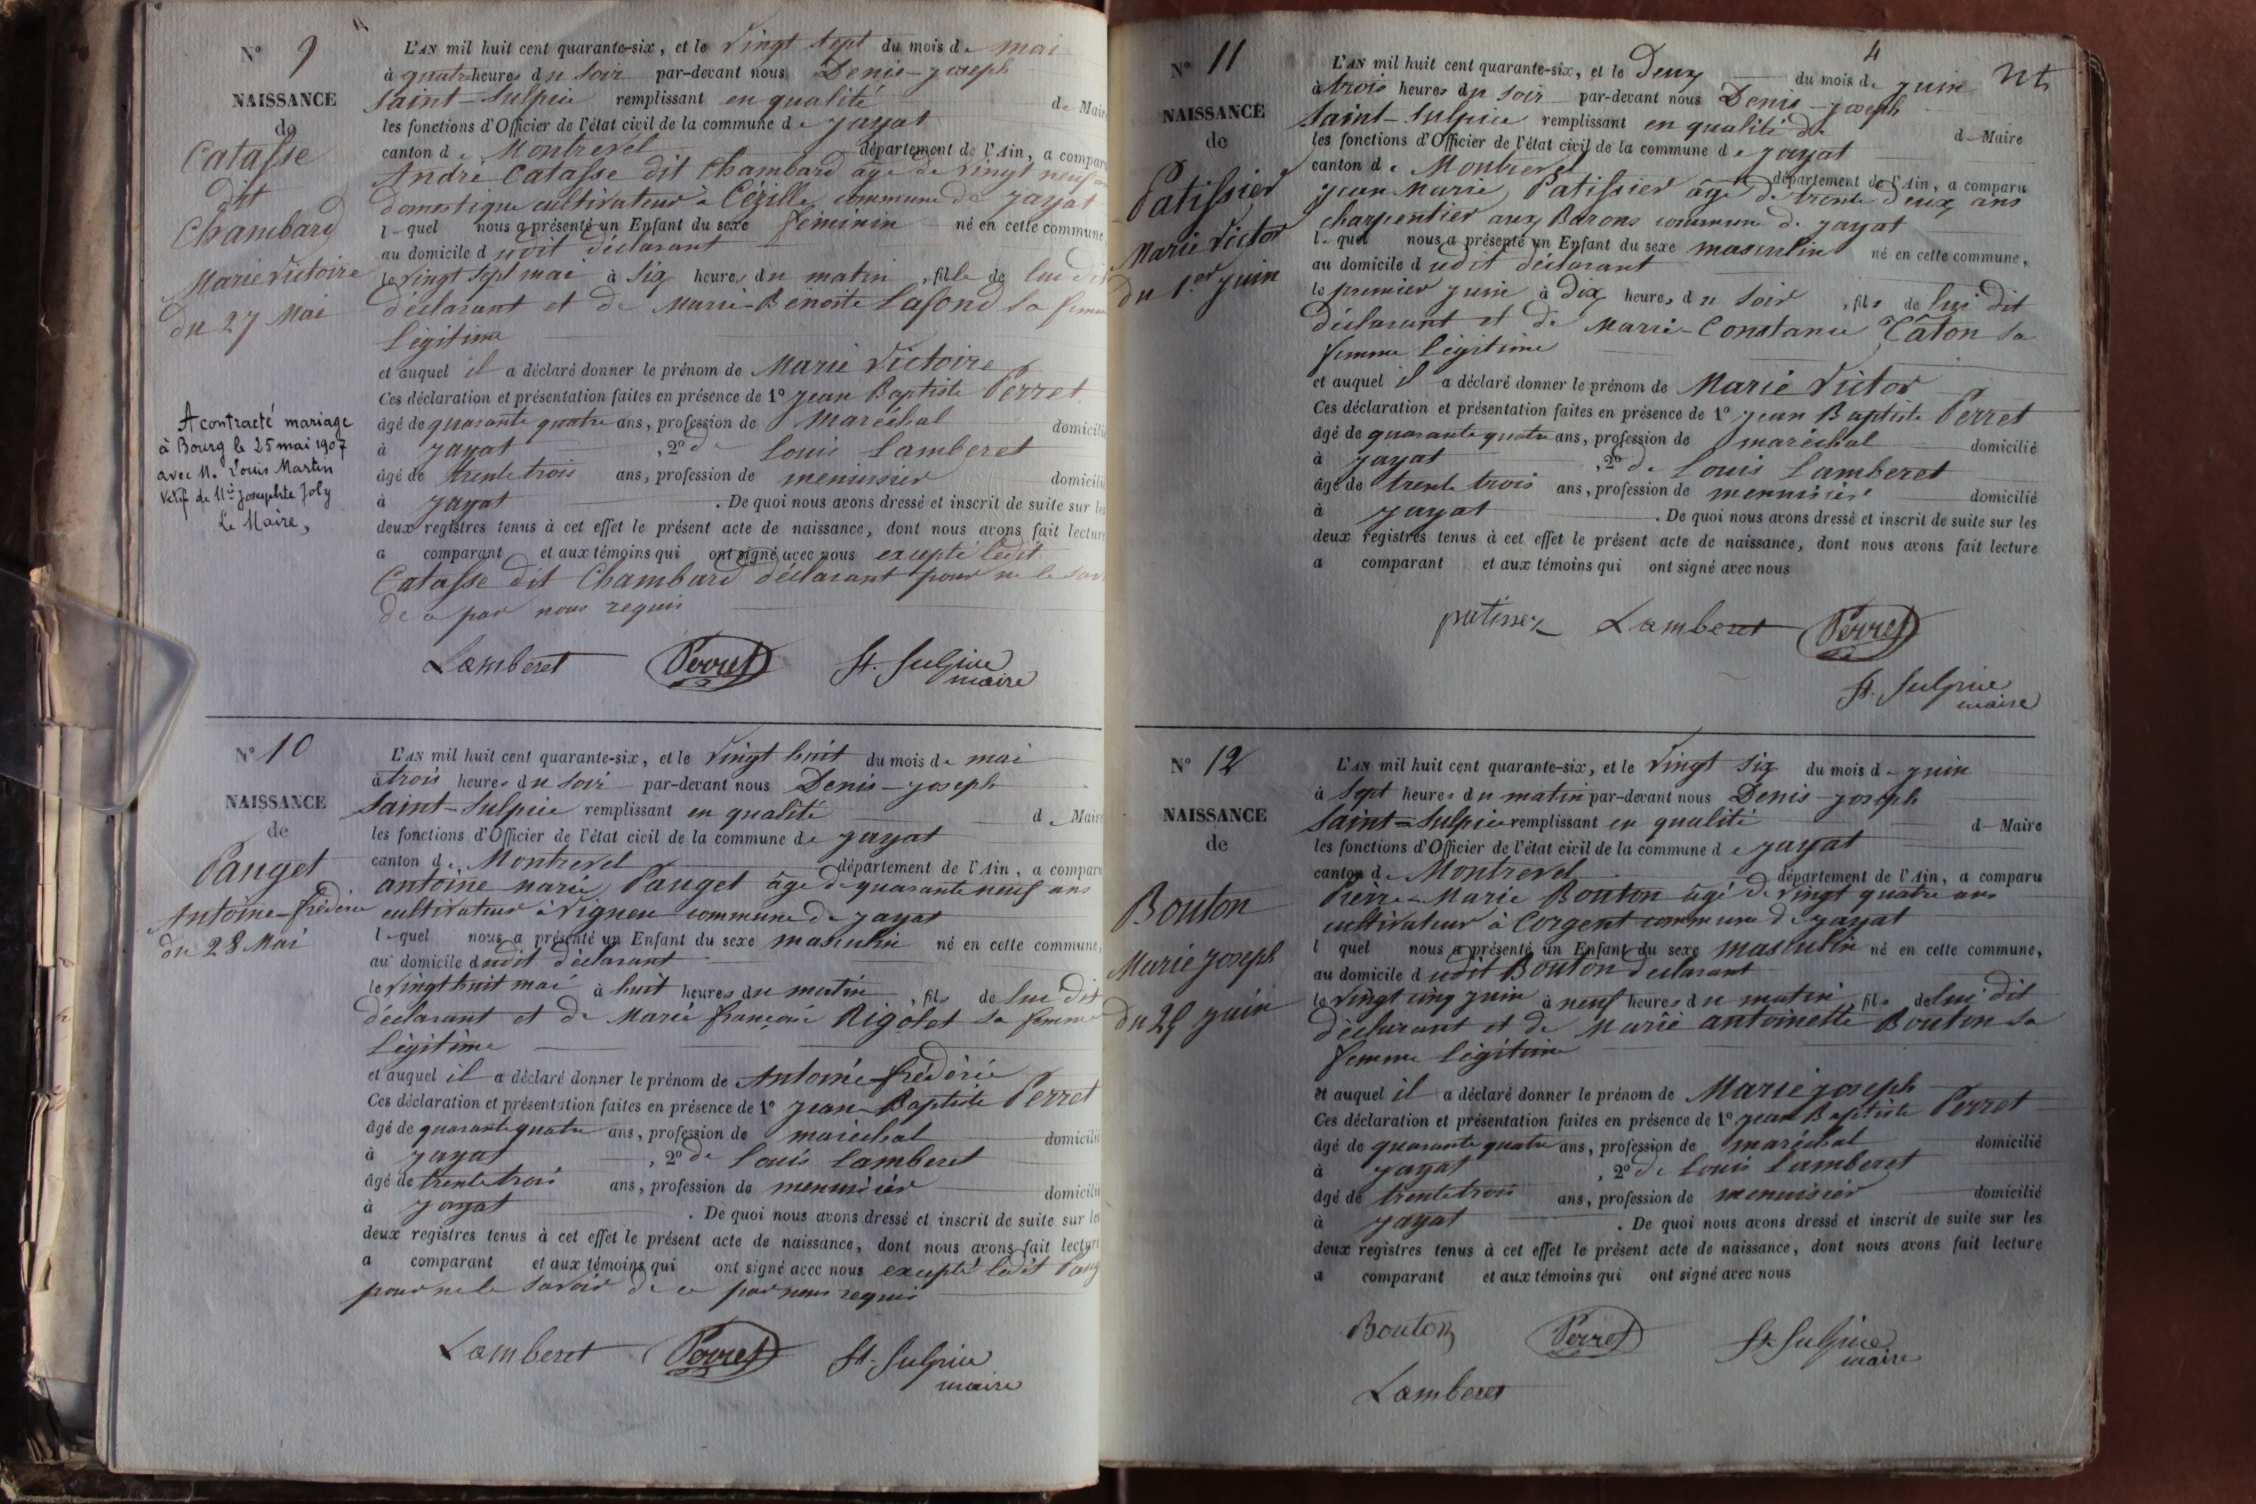 N° 9
NAISSANCE
de
Catasse
dit
Chambard
Marie Victoire
du 27 Mai
A contracté mariage
à Bourg le 25 mai 1907
avec M. Louis Martin
de Mie Josephte Joly
Le Maire,
L'AN mil huit cent quarante-six, et le vingt sept du mois de mai
à quatre heures du soir par-devant nous Denis-joseph
Saint-Sulpice remplissant en qualité de Maire
les fonctions d'Officier de l'état civil de la commune de jayat
canton de Montrevel département de l'Ain, a comparu
André Catasse dit Chambard âgé de vingt neuf
domestique cultivateur à Cézille commune de jayat
lequel nous a présenté un Enfant du sexe féminin né en cette commune,
au domicile dudit déclarant
le vingt sept mai à six heures du matin, fille de lui dit
déclarant et de Marie-Benoite Lafond sa femme
légitime
et auquel il a déclaré donner le prénom de Marie Victoire
Ces déclaration et présentation faites en présence de 1° jean Baptiste Perret
âgé de quarante quatre ans, profession de maréchal domicilié
à jayat, 2° de Louis Lamberet
âgé de trente trois ans, profession de menuisier domicilié
à jayat. De quoi nous avons dressé et inscrit de suite sur les
deux registres tenus à cet effet le présent acte de naissance, dont nous avons fait lecture
a comparant et aux témoins qui ont signé avec nous excepté ledit
Catasse dit Chambard déclarant pour ne le savoir
de ce par nous requis
Lamberet Perret St. Sulpice
maire
N° 10
NAISSANCE
de
Pauget
Antoine-frédéric
du 28 Mai
L'AN mil huit cent quarante-six, et le vingt huit du mois de mai
à trois heures du soir par-devant nous Denis-joseph
Saint-Sulpice remplissant en qualité de Maire
les fonctions d'Officier de l'état civil de la commune de jayat
canton de Montrevel département de l'Ain, a comparu
antoine marie Pauget âgé de quarante neuf ans
cultivateur à Vigneu commune de jayat
lequel nous a présenté un Enfant du sexe masculin né en cette commune,
au domicile dudit déclarant
le vingt huit mai à huit heures du matin, fils de lui dit
déclarant et de Marie françoise Rigolet sa femme
légitime
et auquel il a déclaré donner le prénom de Antoine frédéric
Ces déclaration et présentation faites en présence de 1° jean Baptiste Perret
âgé de quarante quatre ans, profession de maréchal domicilié
à jayat, 2° de Louis Lamberet
âgé de trente trois ans, profession de menuisier domicilié
à jayat. De quoi nous avons dressé et inscrit de suite sur les
deux registres tenus à cet effet le présent acte de naissance, dont nous avons fait lecture
a comparant et aux témoins qui ont signé avec nous excepté ledit Paug
pour ne le savoir de ce par nous requis
Lamberet Perret St. Sulpice
maire
4
N° 11
NAISSANCE
de
Patissier
Marie Victor
du 1er juin
L'AN mil huit cent quarante-six, et le deux du mois de juin
à trois heures du soir par-devant nous Denis-joseph
Saint-Sulpice remplissant en qualité de d Maire
les fonctions d'Officier de l'état civil de la commune de jayat
canton de Montrevel département de l'Ain, a comparu
jean Marie Patissier âgé de trente deux ans
charpentier aux Barons commune de jayat
lequel nous a présenté un Enfant du sexe masculin né en cette commune,
au domicile dudit déclarant
le premier juin à dix heures du soir, fils de lui dit
déclarant et de Marie-Constance Câton sa
femme légitime
et auquel il a déclaré donner le prénom de Marie Victor
Ces déclaration et présentation faites en présence de 1° jean Baptiste Perret
âgé de quarante quatre ans, profession de maréchal domicilié
à jayat, 2° de Louis Lamberet
âgé de trente trois ans, profession de menuisier domicilié
à jayat. De quoi nous avons dressé et inscrit de suite sur les
deux registres tenus à cet effet le présent acte de naissance, dont nous avons fait lecture
a comparant et aux témoins qui ont signé avec nous
patissier Lamberet Perret
St. Sulpice
maire
N° 12
NAISSANCE
de
Bouton
Marie joseph
du 25 juin
L'AN mil huit cent quarante-six, et le vingt six du mois de juin
à sept heures du matin par-devant nous Denis-joseph
Saint-Sulpice remplissant en qualité d Maire
les fonctions d'Officier de l'état civil de la commune de jayat
canton de Montrevel département de l'Ain, a comparu
Pierre-Marie Bouton âgé de vingt quatre ans
cultivateur à Corgent commune de jayat
l quel nous a présenté un Enfant du sexe masculin né en cette commune,
au domicile dudit Bouton déclarant
le vingt cinq juin à neuf heures du matin, fils de lui dit
déclarant et de Marie antoinette Bouton sa
femme légitime
et auquel il a déclaré donner le prénom de Marie joseph
Ces déclaration et présentation faites en présence de 1° jean Baptiste Perret
âgé de quarante quatre ans, profession de maréchal domicilié
à jayat, 2° de Louis Lamberet
âgé de trente trois ans, profession de menuisier domicilié
à jayat. De quoi nous avons dressé et inscrit de suite sur les
deux registres tenus à cet effet le présent acte de naissance, dont nous avons fait lecture
a comparant et aux témoins qui ont signé avec nous
Bouton Perret St. Sulpice
maire
Lamberet